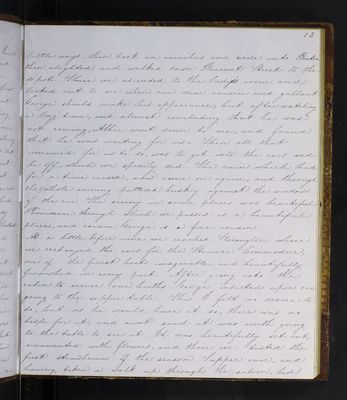 13
little ways, then took an omnibus and rode into Boston
then alighted and walked down Pleasant Street to the
depot. There we ascended to the bridge, and
looked out to see when our dear cousin and gallant
George should make his appearance, but after watching
a long time, and almost concluding that he was
not coming, Abbie went down to see, and found
that he was waiting for us. Then all that
remained for us to do, was to get into the cars and
be off, which we speedily did. The rain which had
for a time ceased, now came on again, and through
the whole evening pattered briskly against the windows
of the car. The scenery in some places was beautiful.
Providence through which we passed is a beautiful
place, and cousin George is a fine cousin.
At a little before nine we reached Stonington where
we exchanged the cars for the Steamer Commodore,
one of the finest boats imaginable, and beautifully
furnished in every part. After going into the
cabin to secure our berths George insisted upon our
going to the supper table. This I felt no desire to
do, but as he would have it so, there was no
help for it, and aunt said it was worth going
to the table to see it. It was beautifully set out,
ornamented with flowers, and there we tasted the
first strawberries of the season. Supper over, and
having taken a walk up through the saloon, bid